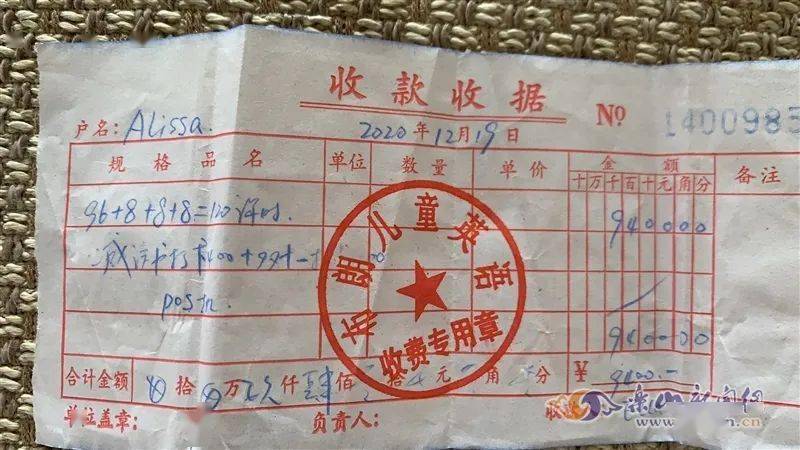 收款收据
№ 1400985
户名: Alissa.
2020年12月19日
规格品名 单位 数量 单价 金额 备注
十万千百十元角分
96+8+8+8=120课时. 940000
400+99
pos机.
940000
合计金额 拾 万 仟 肆佰 拾 元 角 分 ¥ 9400.-
单位盖章: 负责人: 收
儿童英语
收费专用章
乐山新闻网
.cn